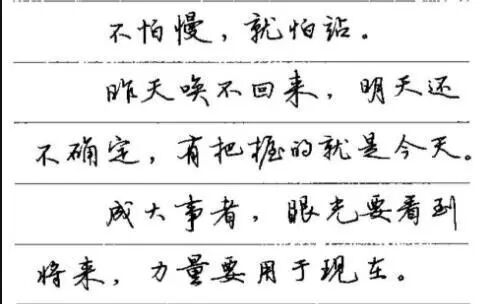 不怕慢，就怕站。
昨天唤不回来，明天还
不确定，有把握的就是今天。
成大事者，眼光要看到
将来，力量要用于现在。